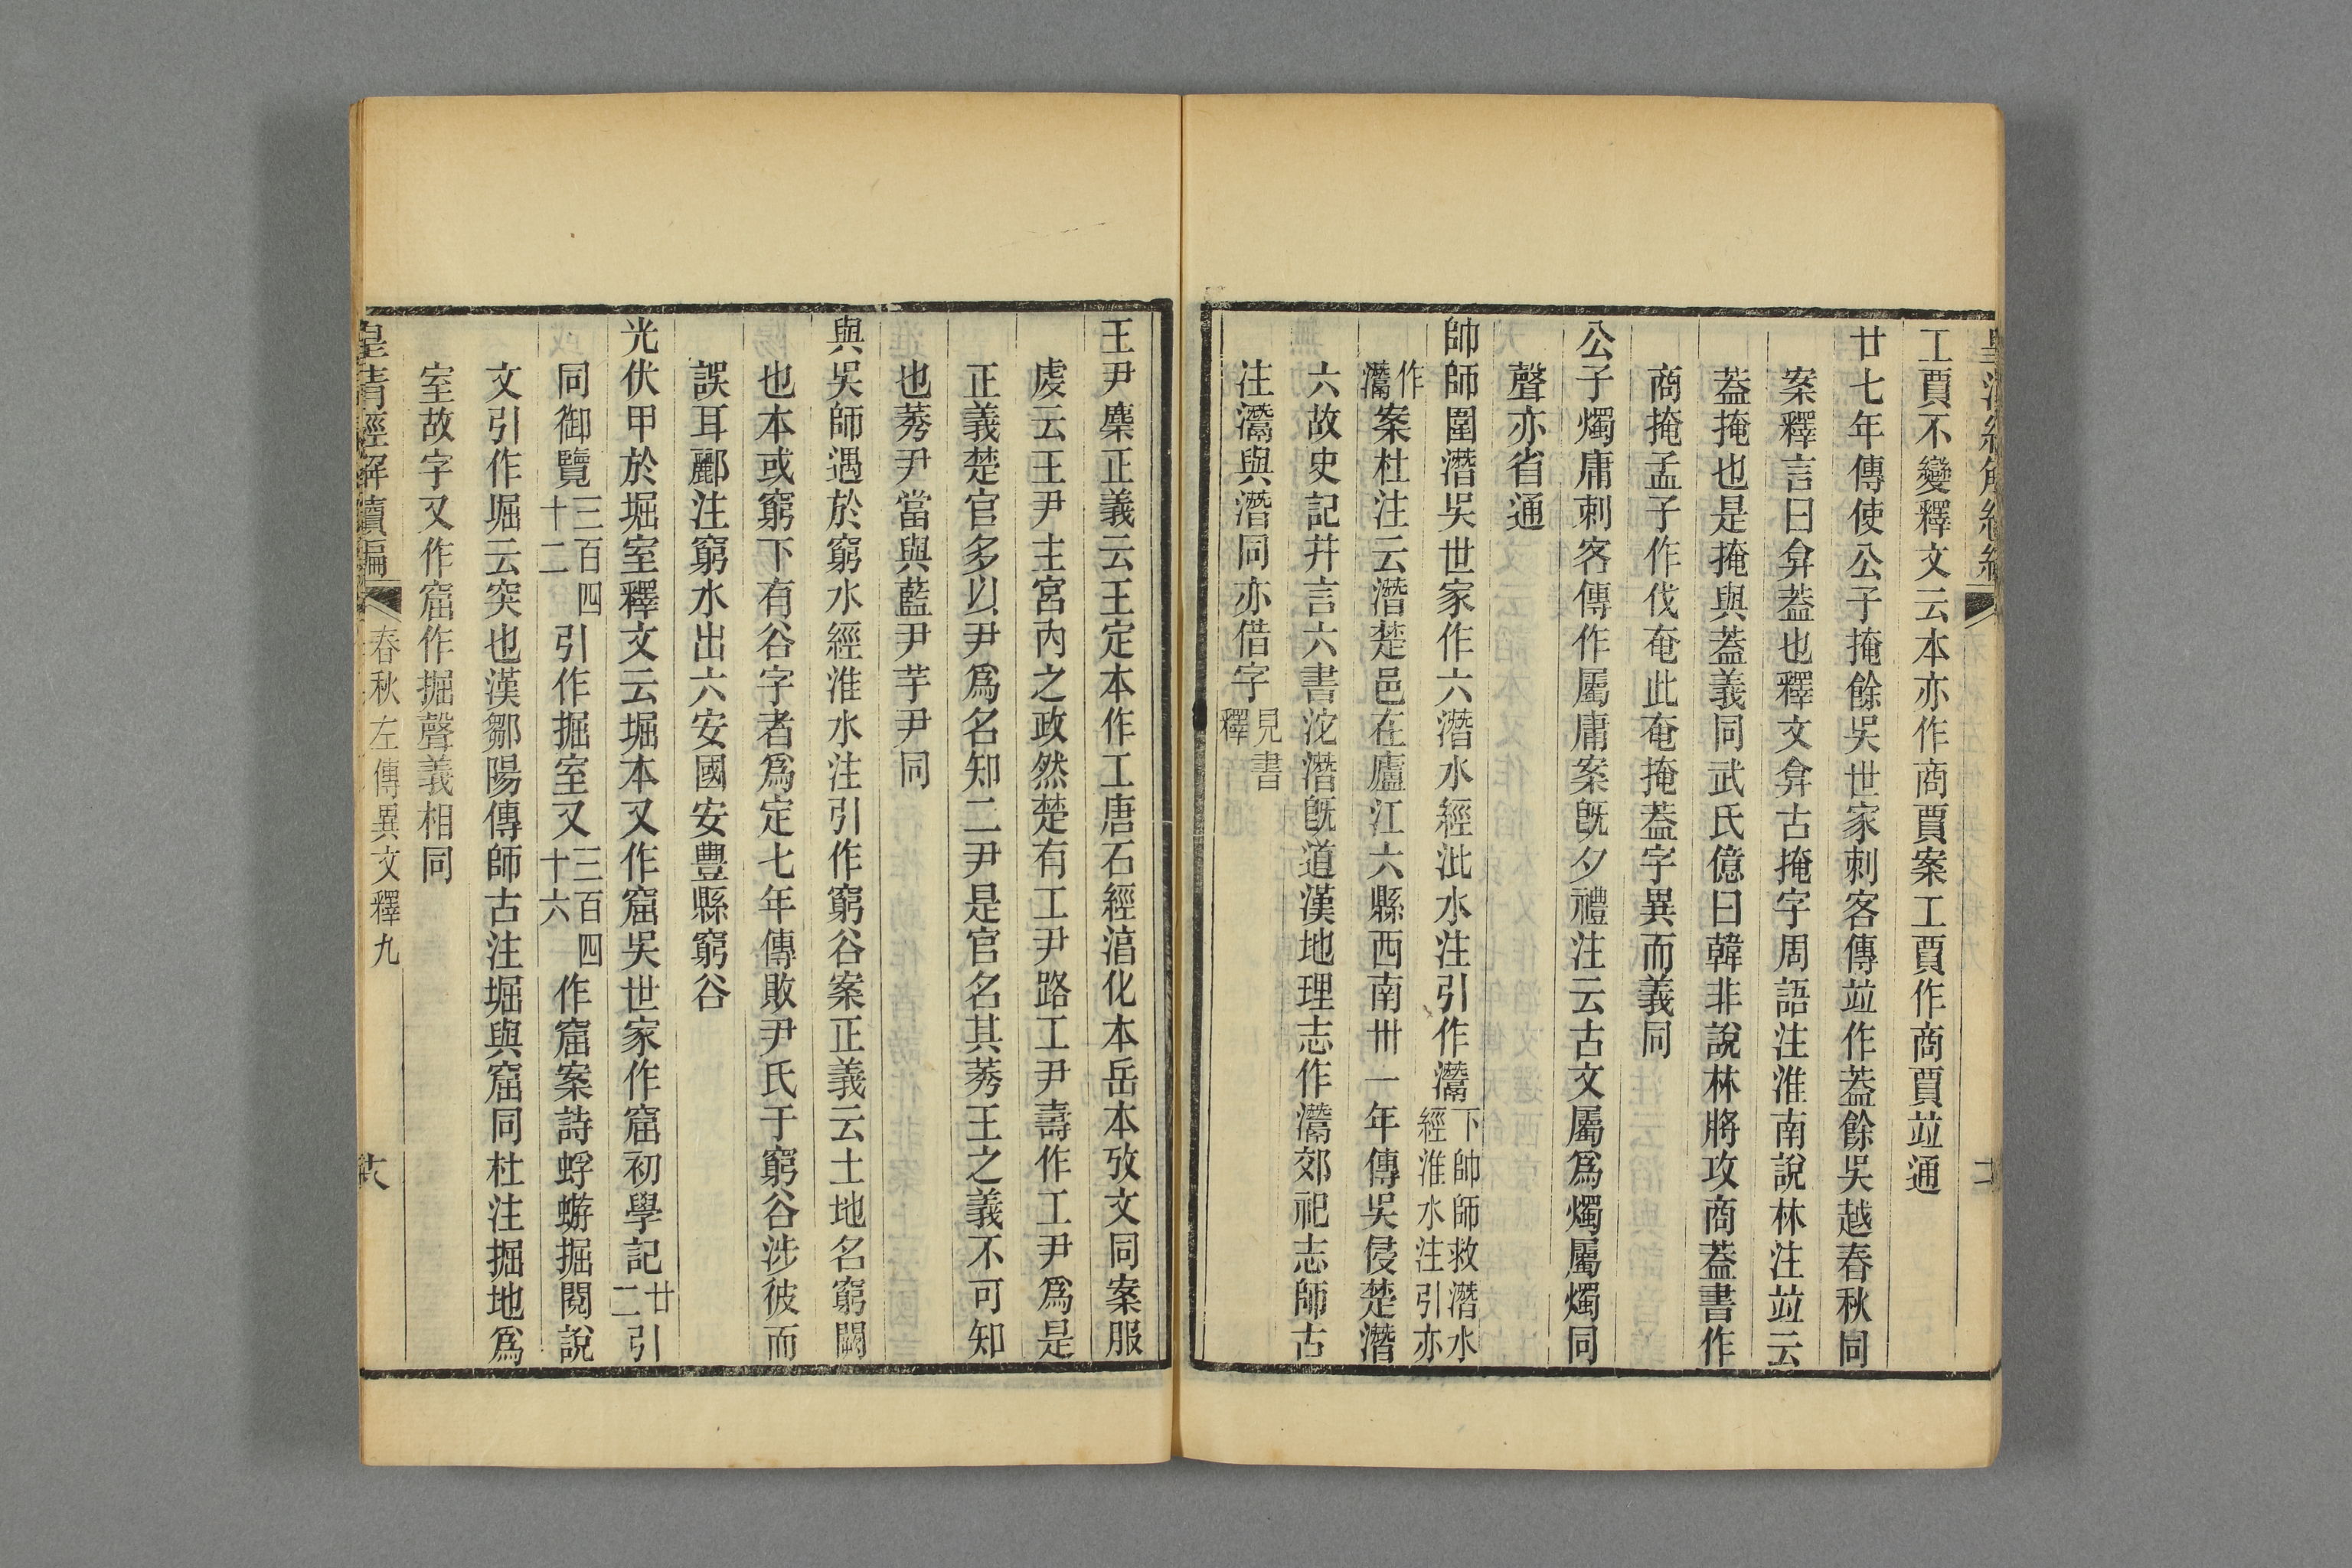 工賈不變釋文云本亦作商賈案工賈作商賈竝通
廿七年傳使公子掩餘吳世家刺客傳竝作葢餘吳越春秋同
案釋言曰弇葢也釋文弇古掩字周語注淮南說林注竝云
葢掩也是掩與葢義同武氏億曰韓非說林將攻商葢書作
商掩孟子作伐奄此奄掩葢字異而義同
公子燭庸刺客傳作屬庸案旣夕禮注云古文屬爲燭屬燭同
聲亦省通
帥師圍潛吳世家作六潛水經沘水注引作灊下帥師救潛水經淮水注引亦
作灊案杜注云潛楚邑在廬江六縣西南卅一年傳吳侵楚潛
六故史記幷言六書沱潛旣道漢地理志作灊郊祀志師古
注灊與潛同亦借字見書釋
王尹麇正義云王定本作工唐石經淯化本岳本攷文同案服
虔云王尹主宮內之政然楚有工尹路工尹壽作工尹爲是
正義楚官多以尹爲名知二尹是官名其莠王之義不可知
也莠尹當與藍尹芋尹同
與吳師遇於窮水經淮水注引作窮谷案正義云土地名窮闕
也本或窮下有谷字者爲定七年傳敗尹氏于窮谷涉彼而
誤耳酈注窮水出六安國安豐縣窮谷
光伏甲於堀室釋文云堀本又作窟吳世家作窟初學記廿二引
同御覽三百四十二引作掘室又三百四十六作窟案詩蜉蝣掘閱說
文引作堀云突也漢鄒陽傳師古注堀與窟同杜注掘地爲
室故字又作窟作掘聲義相同
皇清經解續編 春秋左傳異文釋九